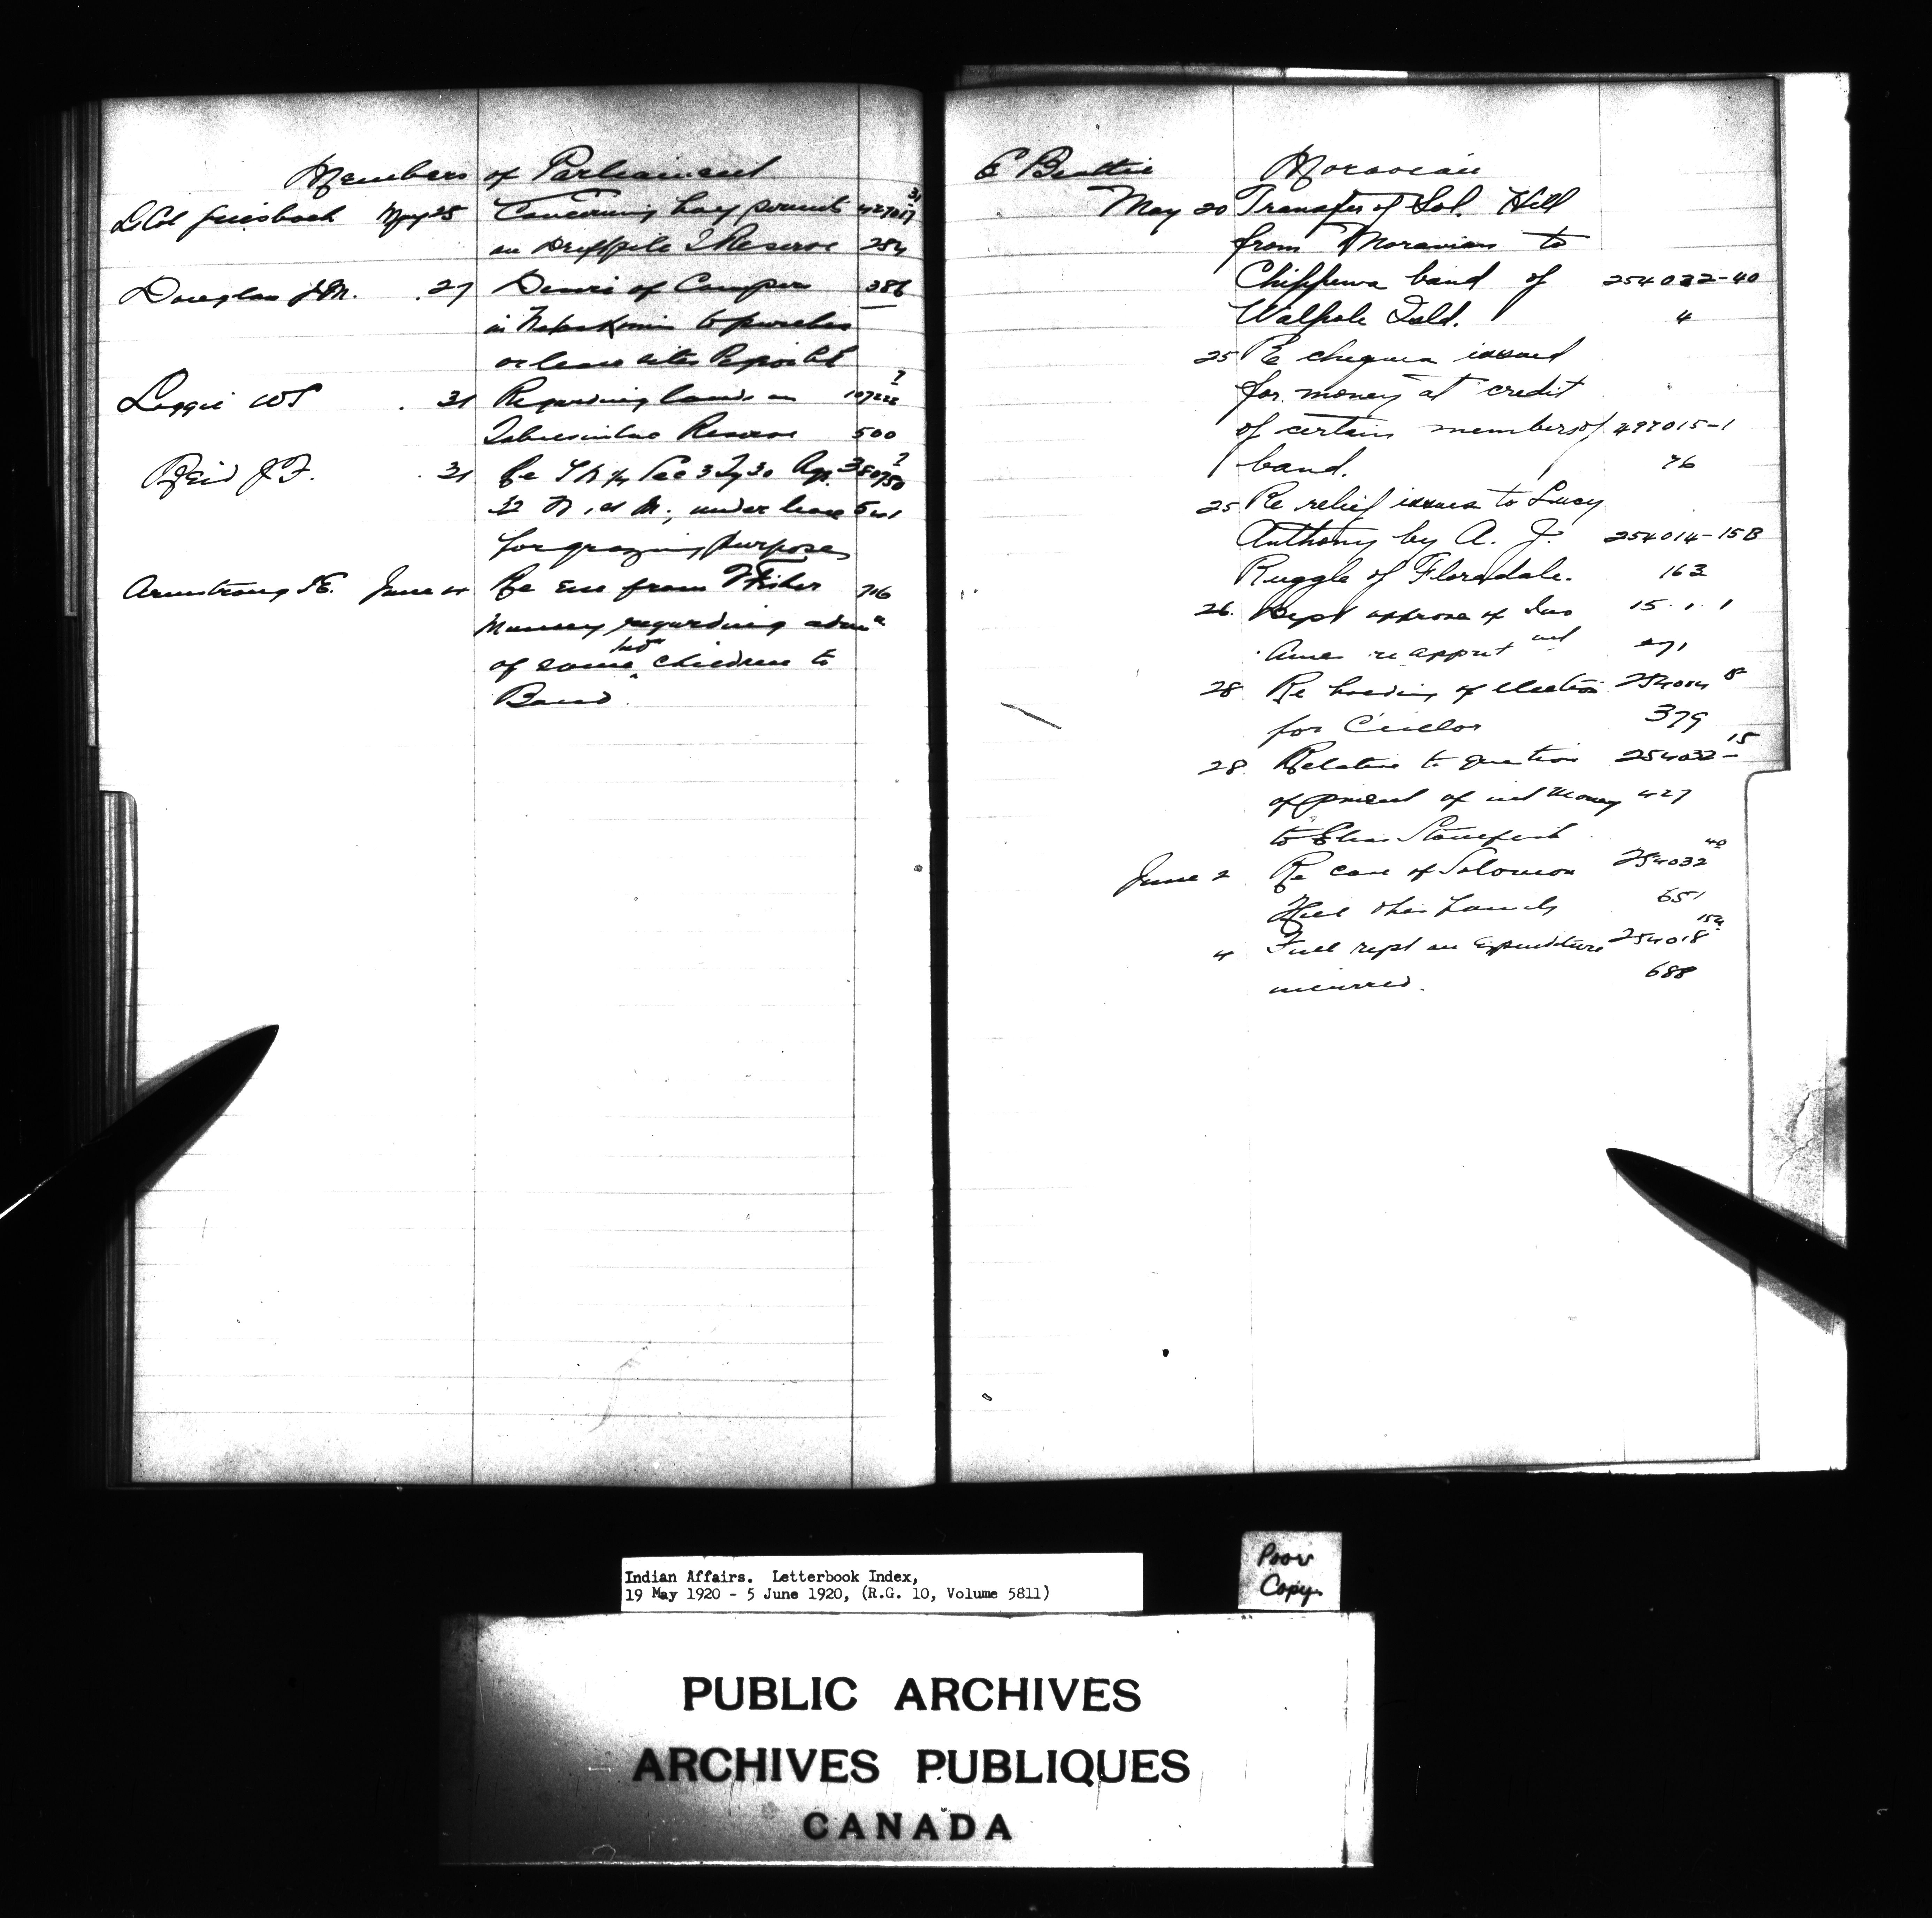 Members of Parliament
Lt Col Griesbach May 25 Concerning hay permits 427017 31
on Driftpile I Reserve 284
Douglas J.M. . 27 Desire of Campers 386
in to purchase
or lease sites
Loggie WS . 31 Regarding lands on 107222 7
Tabusintac Reserve 500
Reid J.F. . 31 Re Sec 3 Tp 30 Rge 380750 7
32 W. 1st M., under lease 501
for grazing purposes
Armstrong J.E. June 4 Re enc from Fisher 716
Muncey regarding admn
of some Ind children to
Band.
E Beattie Moravian
May 20 Transfer of Sol. Hill
from Moravian to
Chippewa band of 254032-40
Walpole Isld. 4
25 Re cheques issued
for money at credit
of certain members of 497015-1
band. 76
25 Re relief issues to Lucy
Anthony by A. J. 254014-15B
Ruggle of Floradale. 163
26. Dept approve of 15.1.1
271
28 Re holding of election 254004 8
for C'cillor 379
28. Relative to question 254032-15
of payment of int money 427
to Elias Stonefish
June 2 Re case of Solomon 254032 40
Hill & his family 651
4 Full rept on expenditure 254018 15A
incurred. 688
Indian Affairs. Letterbook Index,
19 May 1920 - 5 June 1920, (R.G. 10, Volume 5811)
Poor
Copy
PUBLIC ARCHIVES
ARCHIVES PUBLIQUES
CANADA